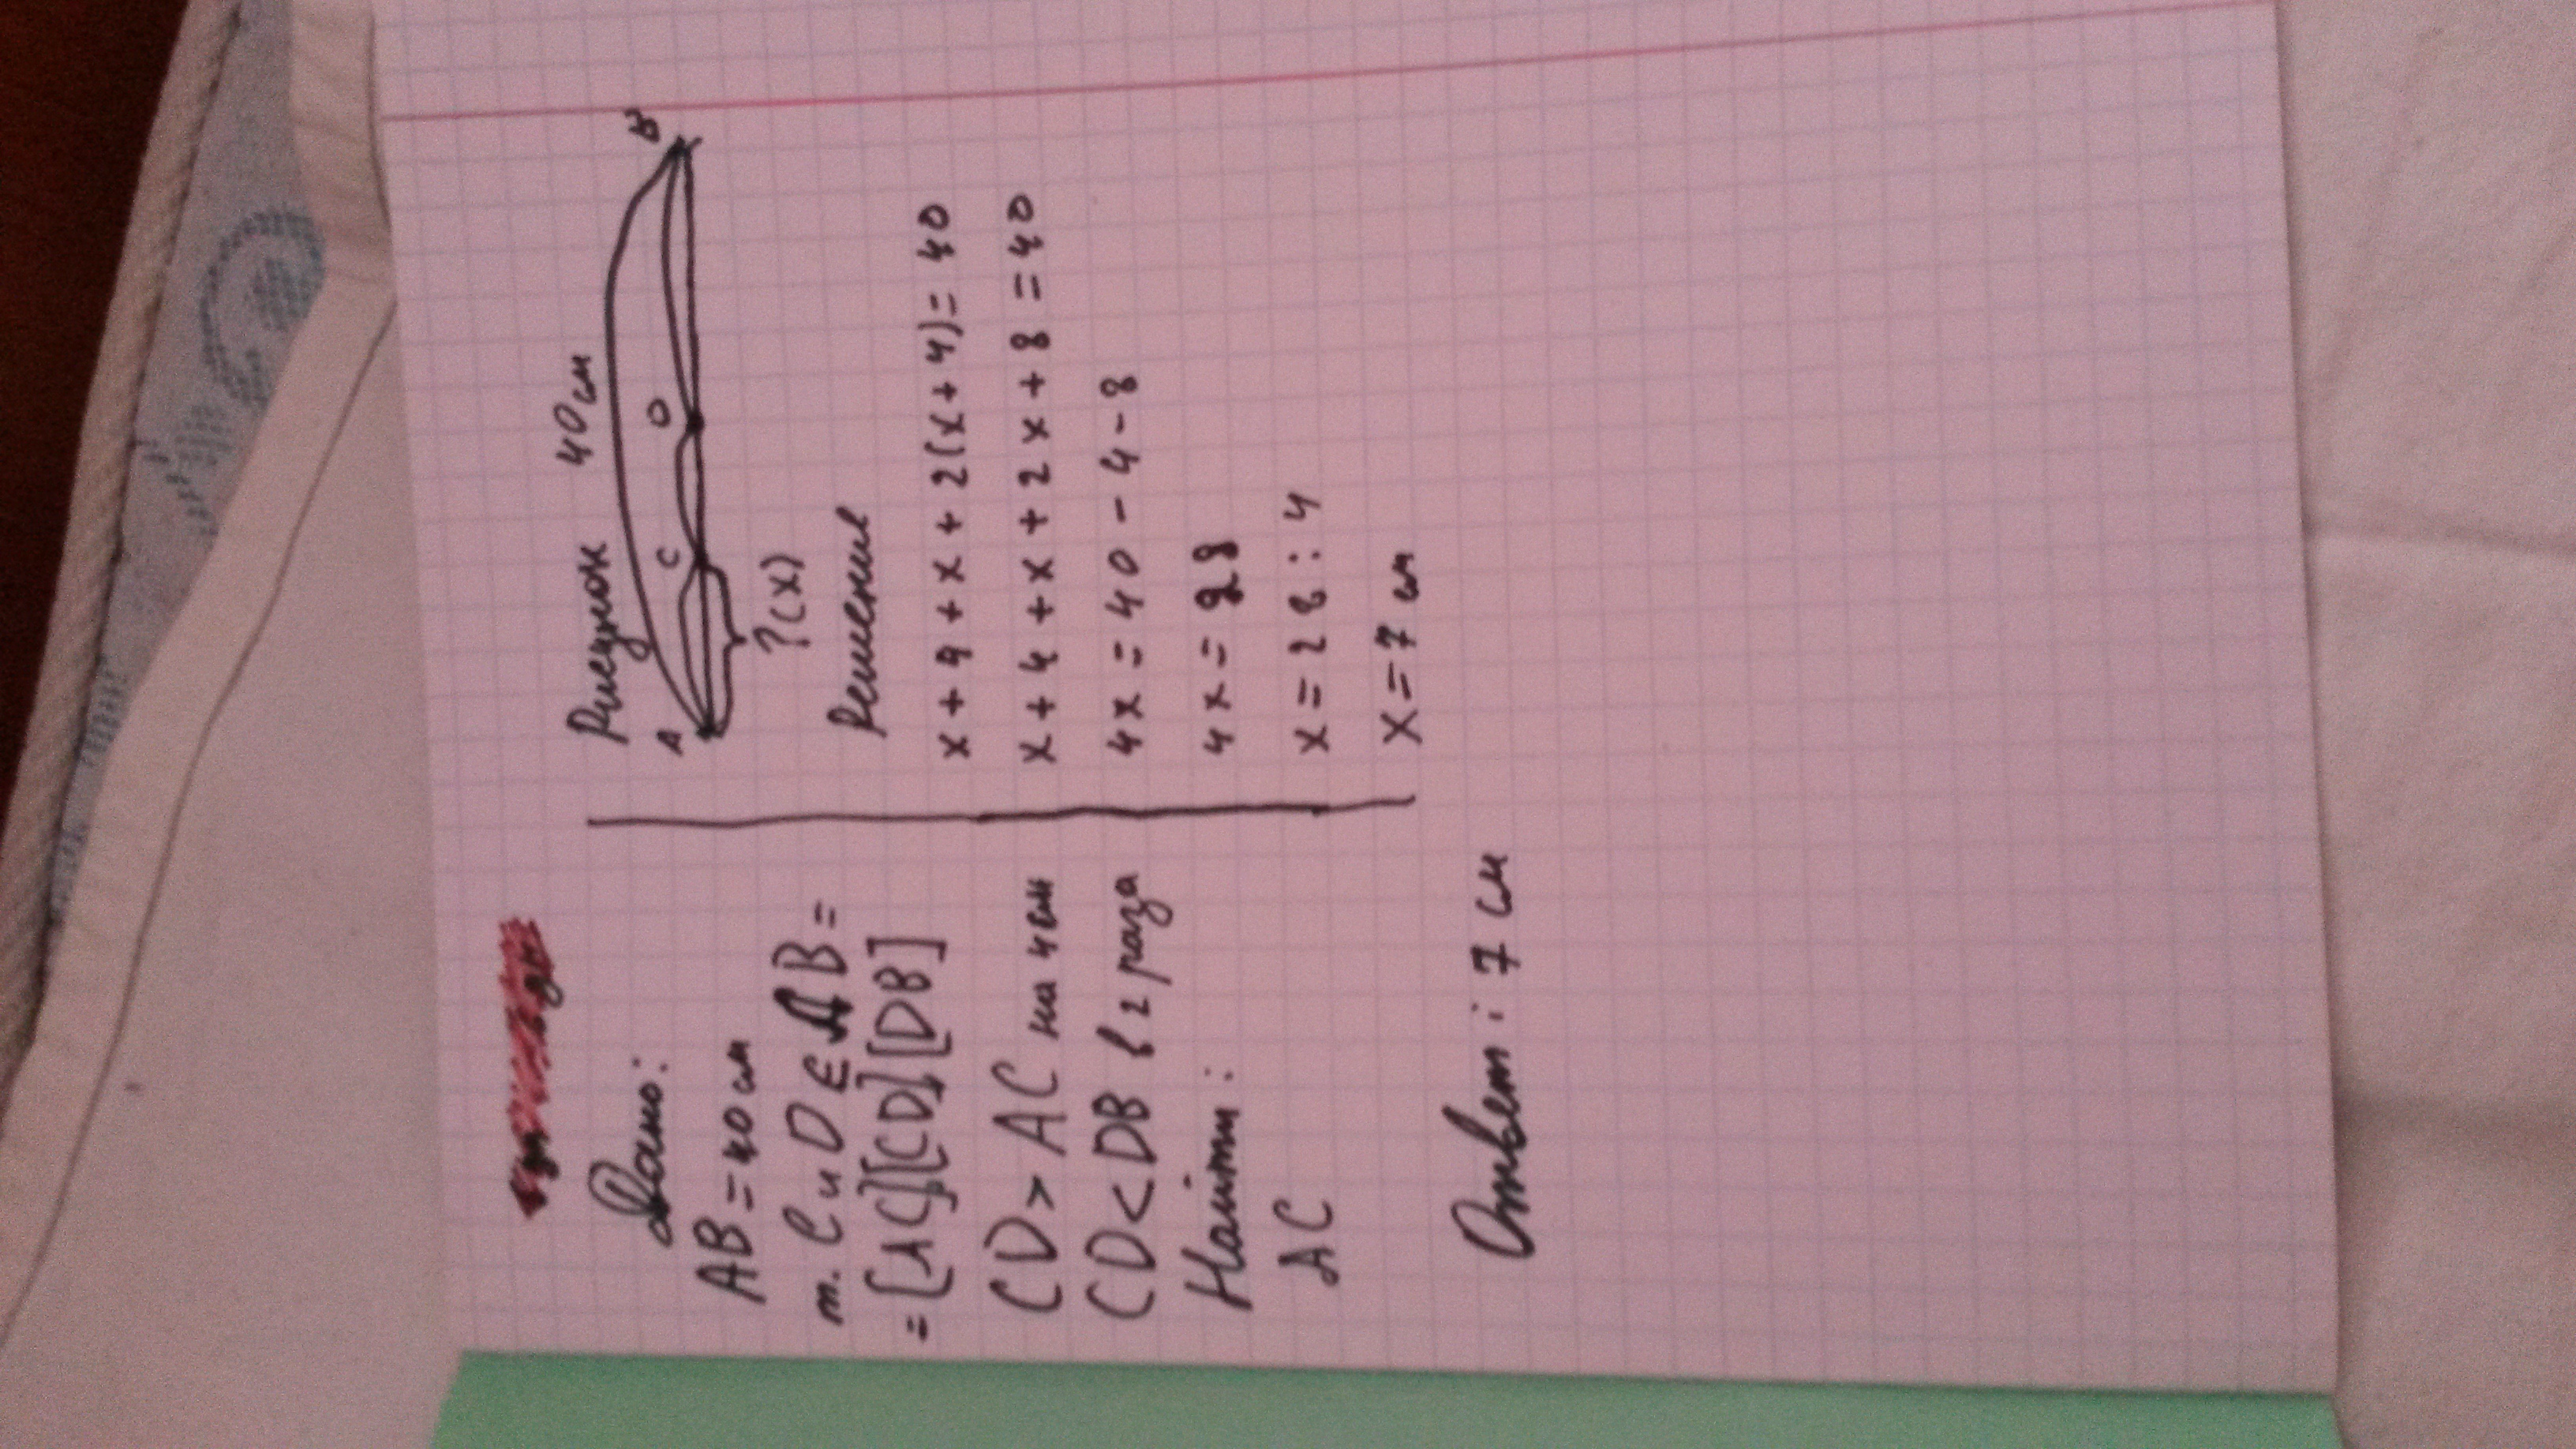 Дано:
AB = 40 см
т. C и D ∈ AB =
= [AC][CD][DB]
CD > AC на 4 см
CD < DB в 2 раза
Найти:
AC
Рисунок 40 см
A C D B
?(x)
Решение
x + 4 + x + 2(x + 4) = 40
x + 4 + x + 2x + 8 = 40
4x = 40 - 4 - 8
4x = 28
x = 28 : 4
x = 7 см
Ответ: 7 см